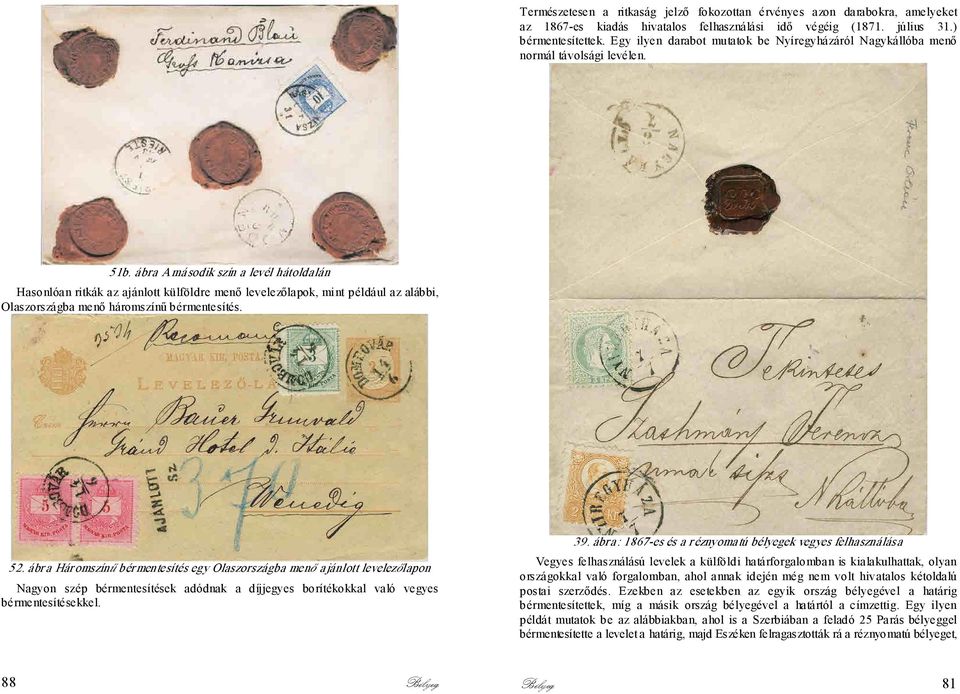 Ferdinand Blau
Gross Kanizsa
51b. ábra A második szín a levél hátoldalán
Hasonlóan ritkák az ajánlott külföldre menő levelezőlapok, mint például az alábbi,
Olaszországba menő háromszínű bérmentesítés.
MAGYAR KIR. POSTA
LEVELEZŐ-LA
DOMBOVÁR
Herrn Bauer Grunwald
Gránd Hotel d. Itália
AJÁNLOTT
Sz
370
Wenedig
5 5
MAGYAR KIR. POSTA MAGYAR KIR. POSTA
52. ábra Háromszínű bérmentesítés egy Olaszországba menő ajánlott levelezőlapon
Nagyon szép bérmentesítések adódnak a díjjegyes borítékokkal való vegyes
bérmentesítésekkel.
88 Bélyeg
Természetesen a ritkaság jelző fokozottan érvényes azon darabokra, amelyeket
az 1867-es kiadás hivatalos felhasználási idő végéig (1871. július 31.)
bérmentesítettek. Egy ilyen darabot mutatok be Nyíregyházáról Nagykállóba menő
normál távolsági levélen.
NAGY KÁLLÓ
Tekintetes
Szathmáry Ferencz
N Kállóba
NYIREGYHÁZA
39. ábra: 1867-es és a réznyomatú bélyegek vegyes felhasználása
Vegyes felhasználású levelek a külföldi határforgalomban is kialakulhattak, olyan
országokkal való forgalomban, ahol annak idején még nem volt hivatalos kétoldalú
postai szerződés. Ezekben az esetekben az egyik ország bélyegével a határig
bérmentesítettek, míg a másik ország bélyegével a határtól a címzettig. Egy ilyen
példát mutatok be az alábbiakban, ahol is a Szerbiában a feladó 25 Parás bélyeggel
bérmentesítette a levelet a határig, majd Eszéken felragasztották rá a réznyomatú bélyeget,
Bélyeg 81